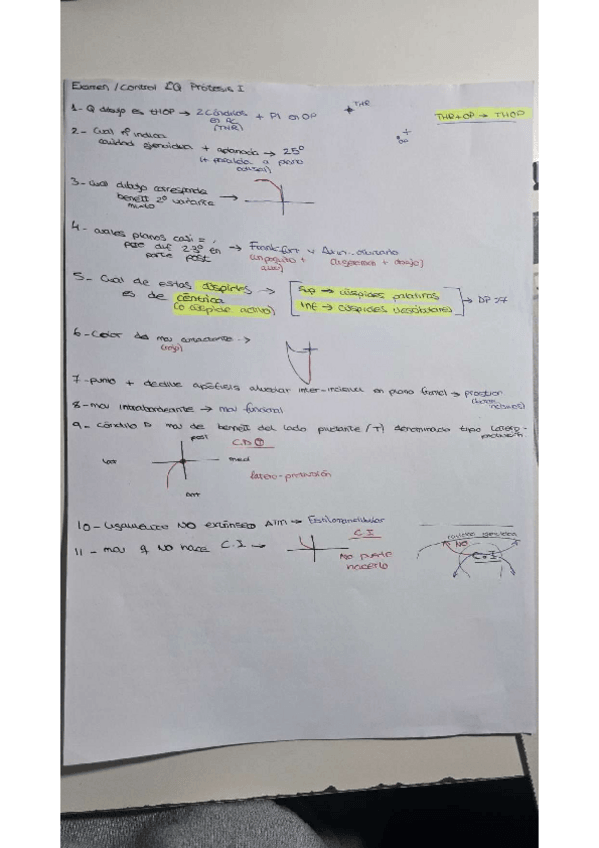 Examen / Control 2Q Prótesis I
1- Q dibujo es tHOP → 2 Cóndilos + PI en OP
en RC
(THR)
THR
THR + OP → THOP
2 - Cual nº indica
cavidad glenoidea + aplanada → 25º
(+ paralela a plano
oclusal)
3 - Cual dibujo corresponde →
benett 2º variante
4 - cuales planos casi = ,
dif 2-3º en → Frankfurt y
parte post (un poquito +
5 - Cual de estas cúspides →
es de céntrica
(o cúspide activa)
Sup → cúspides palatinas
INF → cúspides vestibulares
→ DP 27
6 - Color de mov masticante →
(rojo)
7 - punto + declive apófisis alveolar inter-incisiva en plano frontal → prostion
8 - mov intrabordeante → mov funcional
9 - Cóndilo D mov de benett del lado pivotante (T) denominado tipo Latero-
protrusión
post
C.D (T)
lat
med
latero-protrusión
ant
10 - Ligamento NO extínseco ATM → Estilomandibular
11 - mov q NO hace C.I →
C I
No puede
hacerlo
NO
C.I